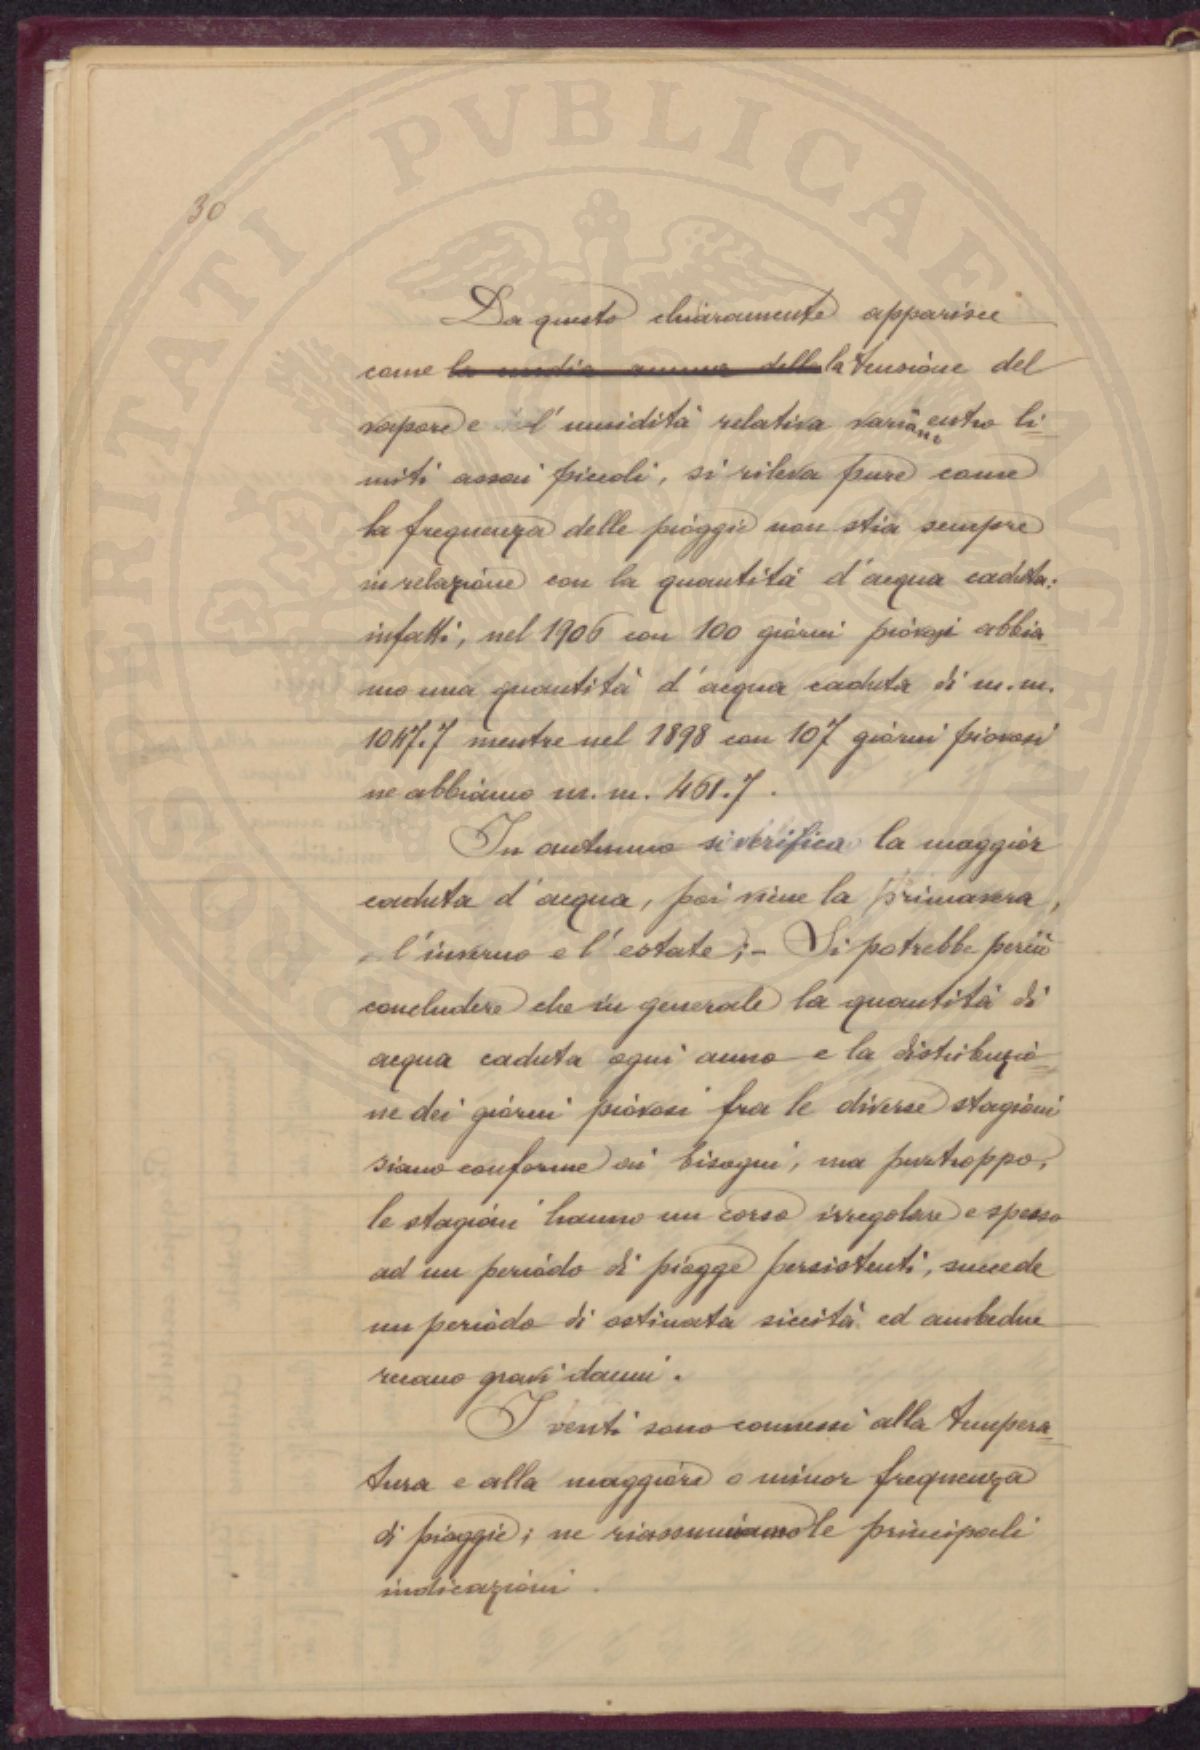 30
Da questo chiaramente apparisce
come la media annua della la tensione del
vapore e l'umidità relativa variano entro li=
miti assai piccoli, si rileva pure come
la frequenza delle pioggie non stia sempre
in relazione con la quantità d'acqua caduta:
infatti, nel 1906 con 100 giorni piovosi abbia
mo una quantità d'acqua caduta di m.m.
1047.7 mentre nel 1898 con 107 giorni piovosi
ne abbiamo m.m. 461.7.
In autunno si verifica la maggior
caduta d'acqua, poi viene la primavera,
l'inverno e l'estate;- Si potrebbe perciò
concludere che in generale la quantità di
acqua caduta ogni anno e la distribuzio=
ne dei giorni piovosi fra le diverse stagioni
siano conforme ai bisogni, ma purtroppo,
le stagioni hanno un corso irregolare e spesso
ad un periodo di piogge persistenti, succede
un periodo di ostinata siccità ed ambedue
recano gravi danni.
I venti sono connessi alla tempera=
tura e alla maggiore o minor frequenza
di pioggie; ne riassumiamo le principali
indicazioni.
PROSPERITATI PVBLICAE AVGENDAE